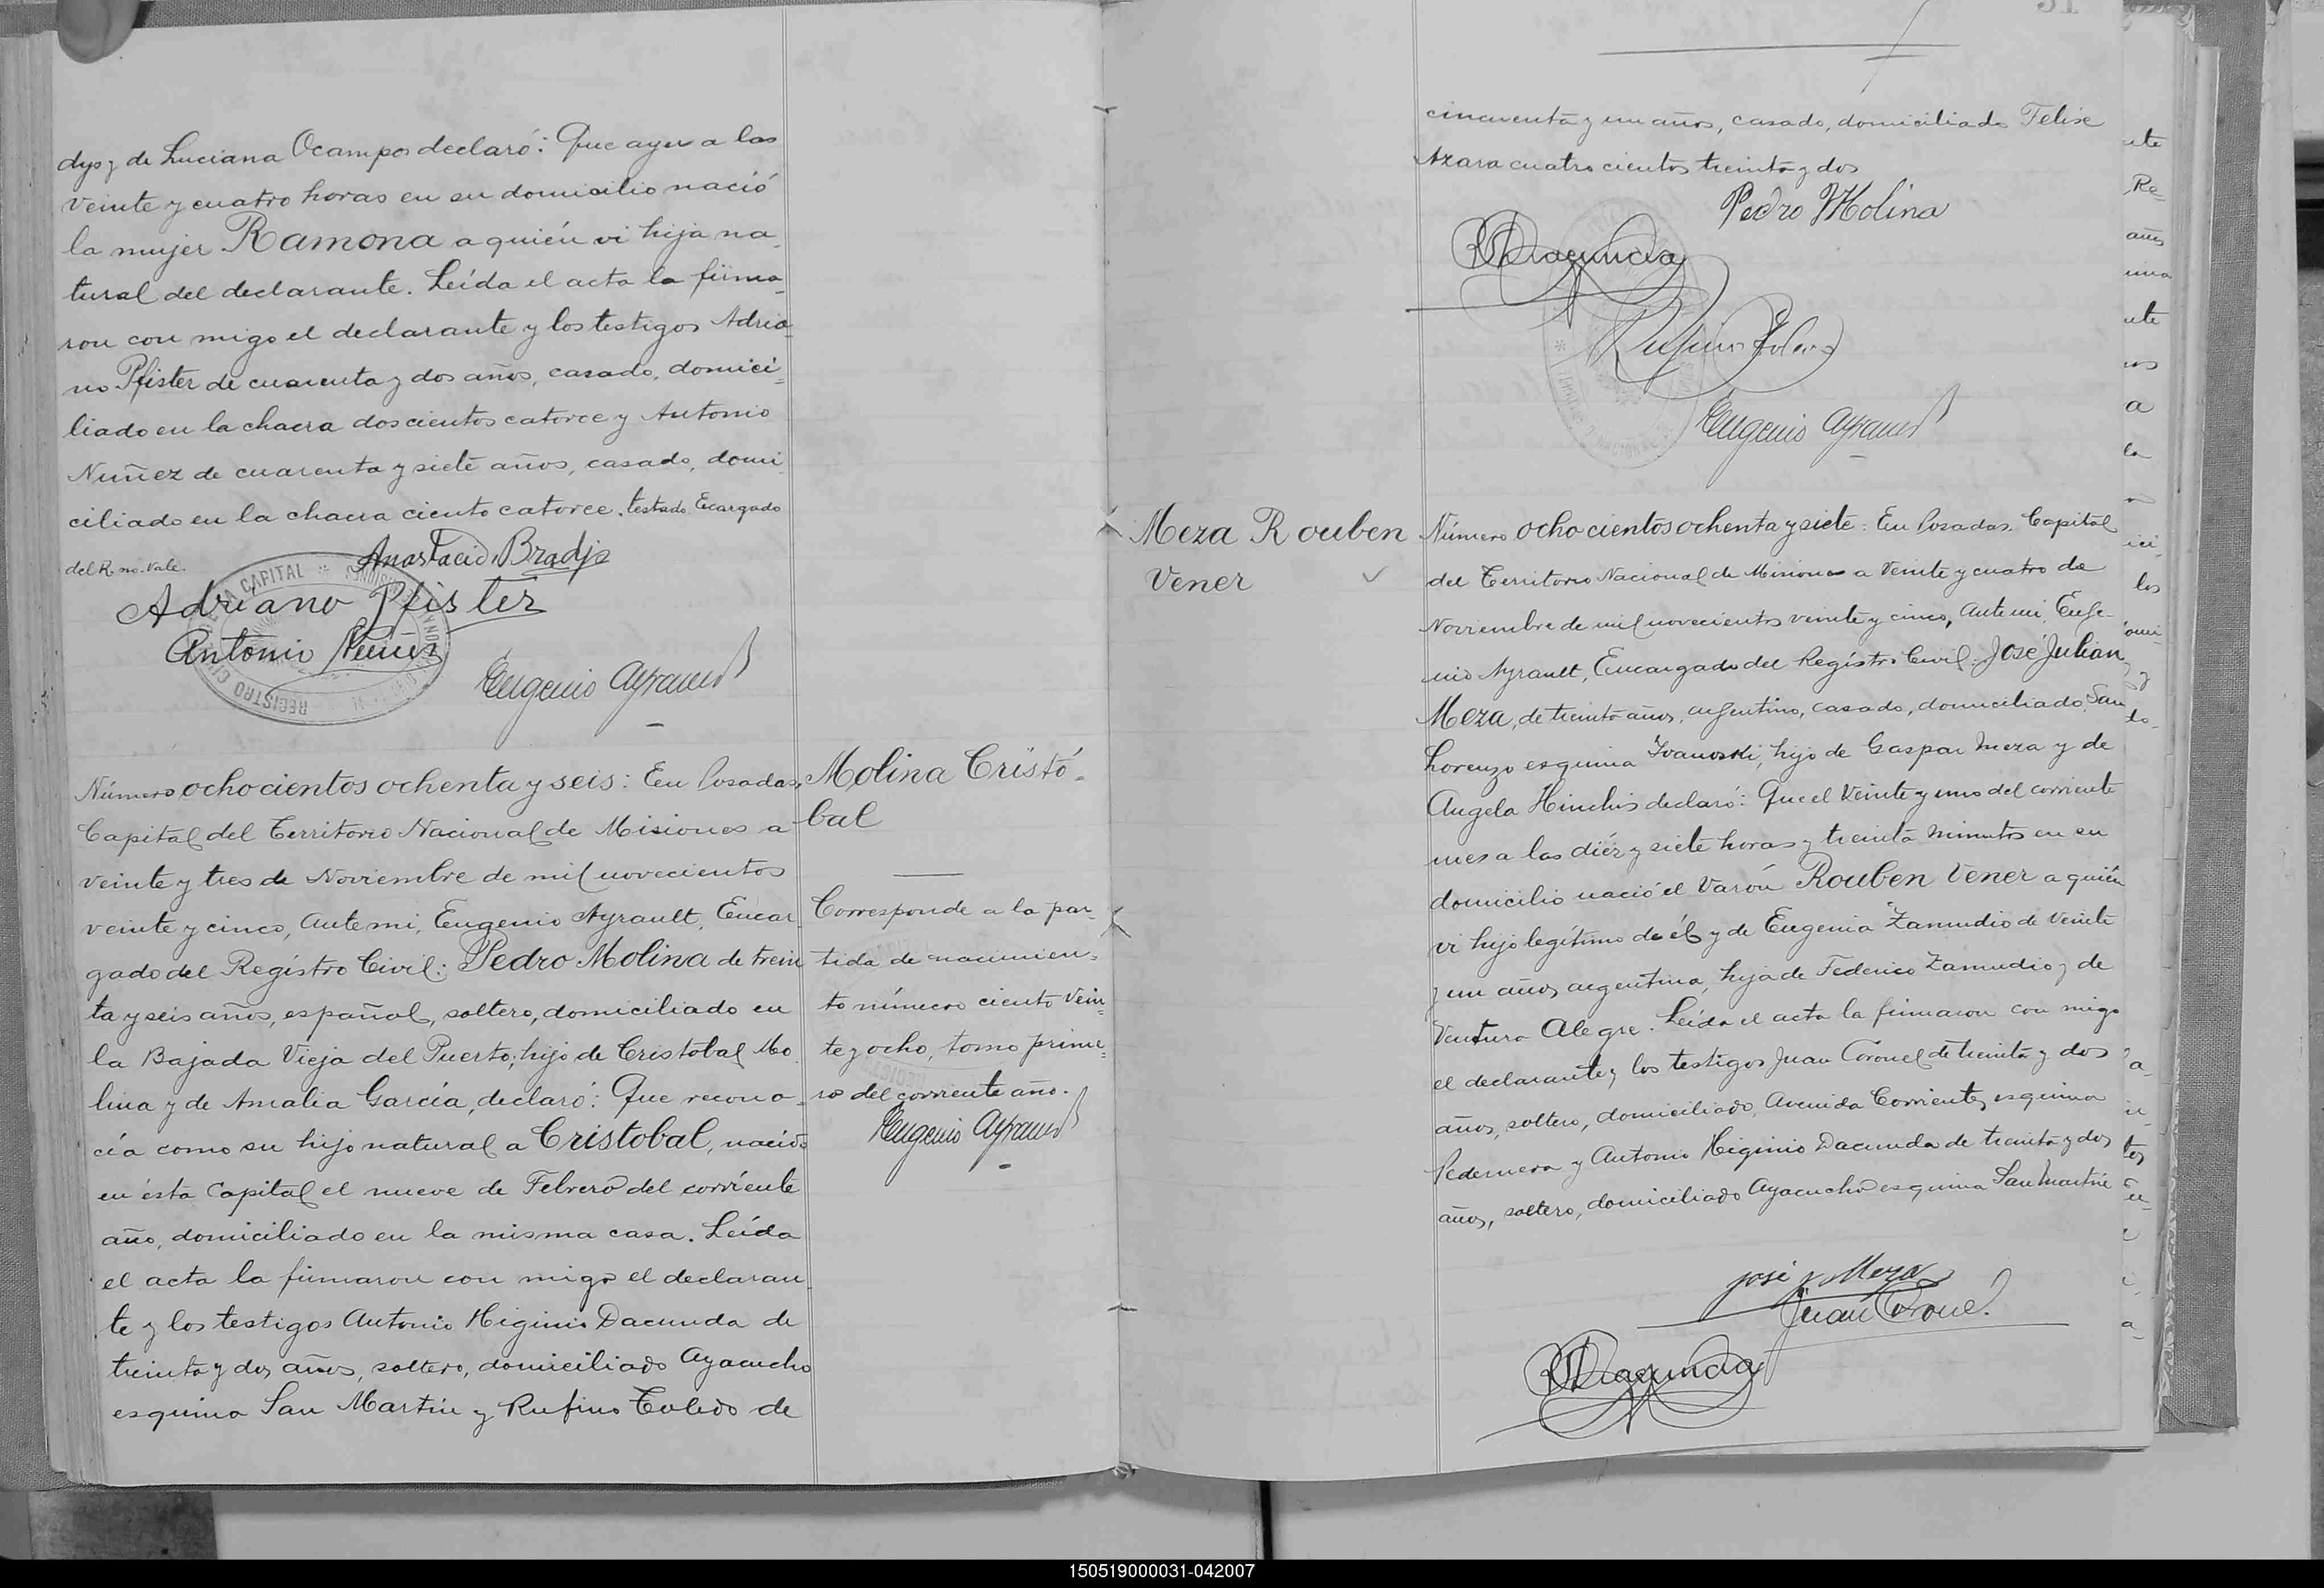 dys y de Luciana Ocampos declaró: Que ayer a las
veinte y cuatro horas en su domicilio nació
la mujer Ramona a quién vi hija na_
tural del declarante. Leída el acta la firma_
ron con migo el declarante y los testigos Adria_
no Pfister de cuarenta y dos años, casado, domici_
liado en la chacra doscientos catorce y Antonio
Nuñez de cuarenta y siete años, casado, domi
ciliado en la chacra ciento catorce. testado Ecargado
del R. no. vale.
Anastacio Bradjs
Adriano Pfister
Antonio Nuñez
Eugenio Ayrault
REGISTRO CIVIL DE LA CAPITAL
Número ochocientos ochenta y seis: En Posadas,
Capital del Territorio Nacional de Misiones a
veinte y tres de Noviembre de mil novecientos
veinte y cinco, Ante mi, Eugenio Ayrault, Encar
gado del Regístro Civil: Pedro Molina de trein
ta y seis años, español, soltero, domiciliado en
la Bajada Vieja del Puerto; hijo de Cristobal Mo_
lina y de Amalia García, declaró: Que recono_
cía como su hijo natural a Cristobal, nacido
en ésta Capital el nueve de Febrero del corriente
año, domiciliado en la misma casa. Leída
el acta la firmaron con migo el declaran_
te y los testigos Antonio Higinio Dacunda de
treinta y dos años, soltero, domiciliado Ayacucho
esquina San Martín y Rufino Toledo de
Molina Cristó_
bal
Corresponde a la par_
tida de nacimien_
to número ciento vein_
te y ocho, tomo prime_
ro del corriente año.
Eugenio Ayrault
cincuenta y un años, casado, domiciliado Felise
Azara cuatrocientos treinta y dos
Pedro Molina
Dacunda
Rufino Toledo
Eugenio Ayrault
Meza Rouben
Vener
Número ochocientos ochenta y siete: En Posadas, Capital
del Territorio Nacional de Misiones a veinte y cuatro de
Noviembre de mil novecientos veinte y cinco, Ante mi, Euge_
nio Ayrault, Encargado del Regístro Civil: José Julian
Meza, de treinta años, argentino, casado, domiciliado San
Lorenzo esquina Ivanoski, hijo de Gaspar Meza y de
Angela Hinchis declaró: Que el veinte y uno del corriente
mes a las diéz y siete horas y treinta minutos en su
domicilio nació el varón Rouben Vener a quién
vi hijo legítimo de él y de Eugenia Zamudio de veinte
y un años argentina, hija de Federico Zamudio y de
Ventura Alegre. Leída el acta la firmaron con migo
el declarante y los testigos Juan Coronel de treinta y dos
años, soltero, domiciliado Avenida Corrientes esquina
Pedernera y Antonio Higinio Dacunda de treinta y dos
años, soltero, domiciliado Ayacucho esquina San Martín
José J. Meza
Juan Coronel
Dacunda
150519000031-042007